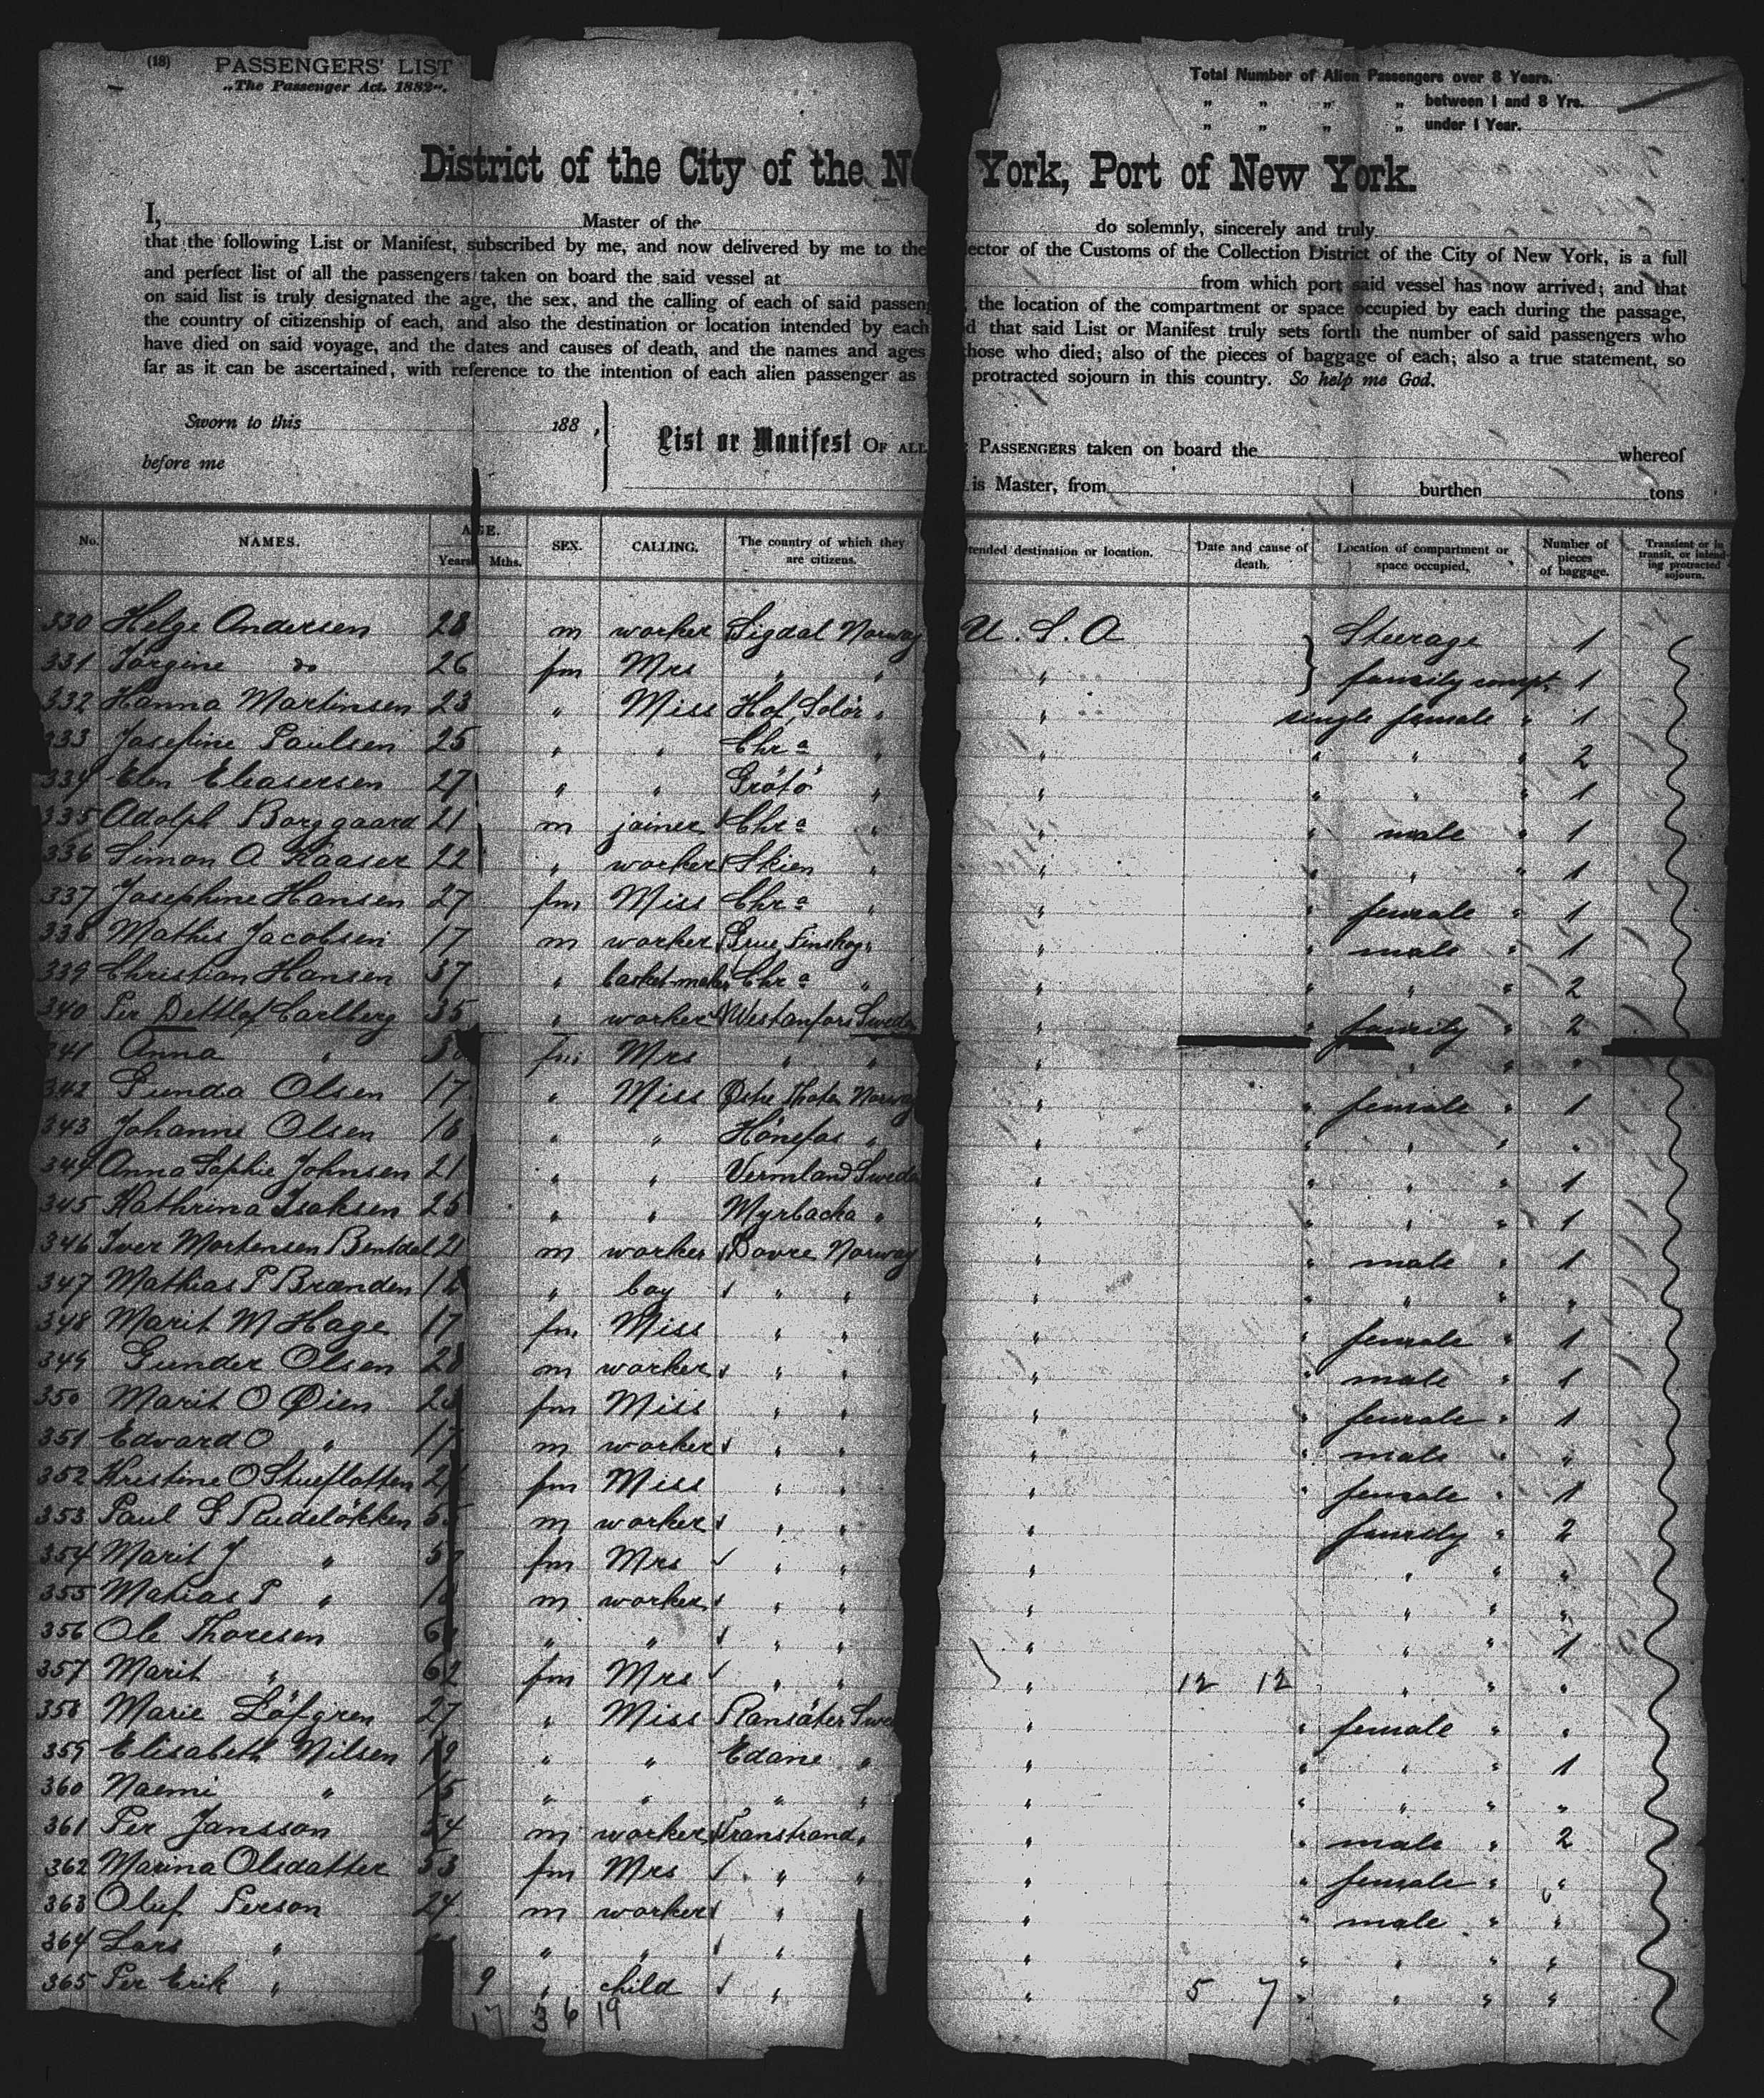 (18) PASSENGERS' LIST
„The Passenger Act. 1882".
Total Number of Alien Passengers over 8 Years.
„ „ „ „ between 1 and 8 Yrs.
„ „ „ „ under 1 Year.
District of the City of the Ne York, Port of New York.
I, Master of the do solemnly, sincerely and truly
that the following List or Manifest, subscribed by me, and now delivered by me to the ector of the Customs of the Collection District of the City of New York, is a full
and perfect list of all the passengers taken on board the said vessel at from which port said vessel has now arrived; and that
on said list is truly designated the age, the sex, and the calling of each of said passen the location of the compartment or space occupied by each during the passage,
the country of citizenship of each, and also the destination or location intended by each d that said List or Manifest truly sets forth the number of said passengers who
have died on said voyage, and the dates and causes of death, and the names and ages those who died; also of the pieces of baggage of each; also a true statement, so
far as it can be ascertained, with reference to the intention of each alien passenger as protracted sojourn in this country. So help me God.
Sworn to this 188 ,
before me
List or Manifest OF ALL PASSENGERS taken on board the whereof
is Master, from burthen tons
No. NAMES. AGE. Years Mths. SEX. CALLING. The country of which they are citizens. tended destination or location. Date and cause of death. Location of compartment or space occupied. Number of pieces of baggage. Transient or in transit, or intending protracted sojourn.
330 Helge Andersen 28 m worker Sigdal Norway U.S.A Steerage 1
331 Torgine do 26 fm Mrs " " " family compt 1
332 Hanna Martinsen 23 " Miss Hof, Solör " " single female " 1
333 Josefine Paulsen 25 " " Chra " " " " " 2
334 Elen Eliasersen 27 " " Grötö " " " " " 1
335 Adolph Borggaard 21 m joiner Chra " " " male " 1
336 Simon A Kaaser 22 " worker Skien " " " " " 1
337 Josephine Hansen 27 fm Miss Chra " " " female " 1
338 Mathis Jacobsen 17 m worker Grue Finskog " " " male " 1
339 Christian Hansen 37 " basket-maker Chra " " " " " 2
340 Per Dettlof Carlberg 35 " worker Westanfors Sweden " " family " 2
341 Anna " fm Mrs " " " " " "
342 Gunda Olsen 17 " Miss Østre Thoten Norway " " female " 1
343 Johanne Olsen 18 " " Hönefos " " " " " "
344 Anna Sophie Johnsen 21 " " Vermland Sweden " " " " 1
345 Kathrina Isaksen 25 " " Myrbacka " " " " " 1
346 Iver Mortensen Bentdal 21 m worker Dovre Norway " " male " 1
347 Mathias P Brænden " boy " " " " " " "
348 Marit M Hage 17 fm Miss " " " " female " 1
349 Gunder Olsen 28 m worker " " " " male " 1
350 Marit O Øien fm Miss " " " " female " 1
351 Edvard O " 17 m worker " " " " male " "
352 Kristine O Stueflotten fm Miss " " " " female " 1
353 Paul S Rudelökken m worker " " " family " 2
354 Marit J " fm Mrs " " " " " "
355 Mathias P " m worker " " " " " "
356 Ole Thoresen " " " " " " " 1
357 Marit " 62 fm Mrs " " " 12 12 " " "
358 Marie Löfgren 27 " Miss Ransäter Swe " " female " "
359 Elisabeth Nilsen 19 " " Edane " " " " " 1
360 Naemi " 15 " " " " " " " " "
361 Per Jansson 54 m worker Transtrand " " " male " 2
362 Marina Olsdatter 53 fm Mrs " " " " female " "
363 Oluf Person 24 m worker " " " male " "
364 Lars " " " " " " " " "
365 Per Erik " 9 " child " " 5 7 " " " "
17 3 6 19